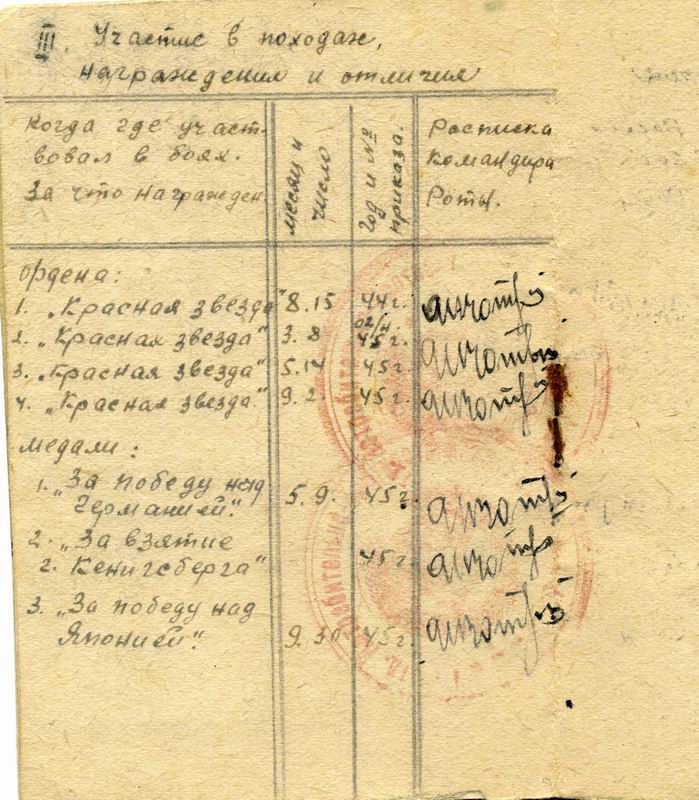 III. Участие в походах,
награждения и отличия
Когда где участ-
вовал в боях.
За что награжден.
месяц и
число
год и №
приказа.
Расписка
командира
Роты.
Ордена:
1. „Красная звезда" 8.15 44г.
2. „Красная звезда" 3.8 45г.
3. „Красная звезда" 5.14 45г.
4. „Красная звезда" 9.2 45г.
Медали:
1. „За победу над
Германией". 5.9. 45г.
2. „За взятие
г. Кенигсберга" 45г.
3. „За победу над
Японией". 9.30 45г.